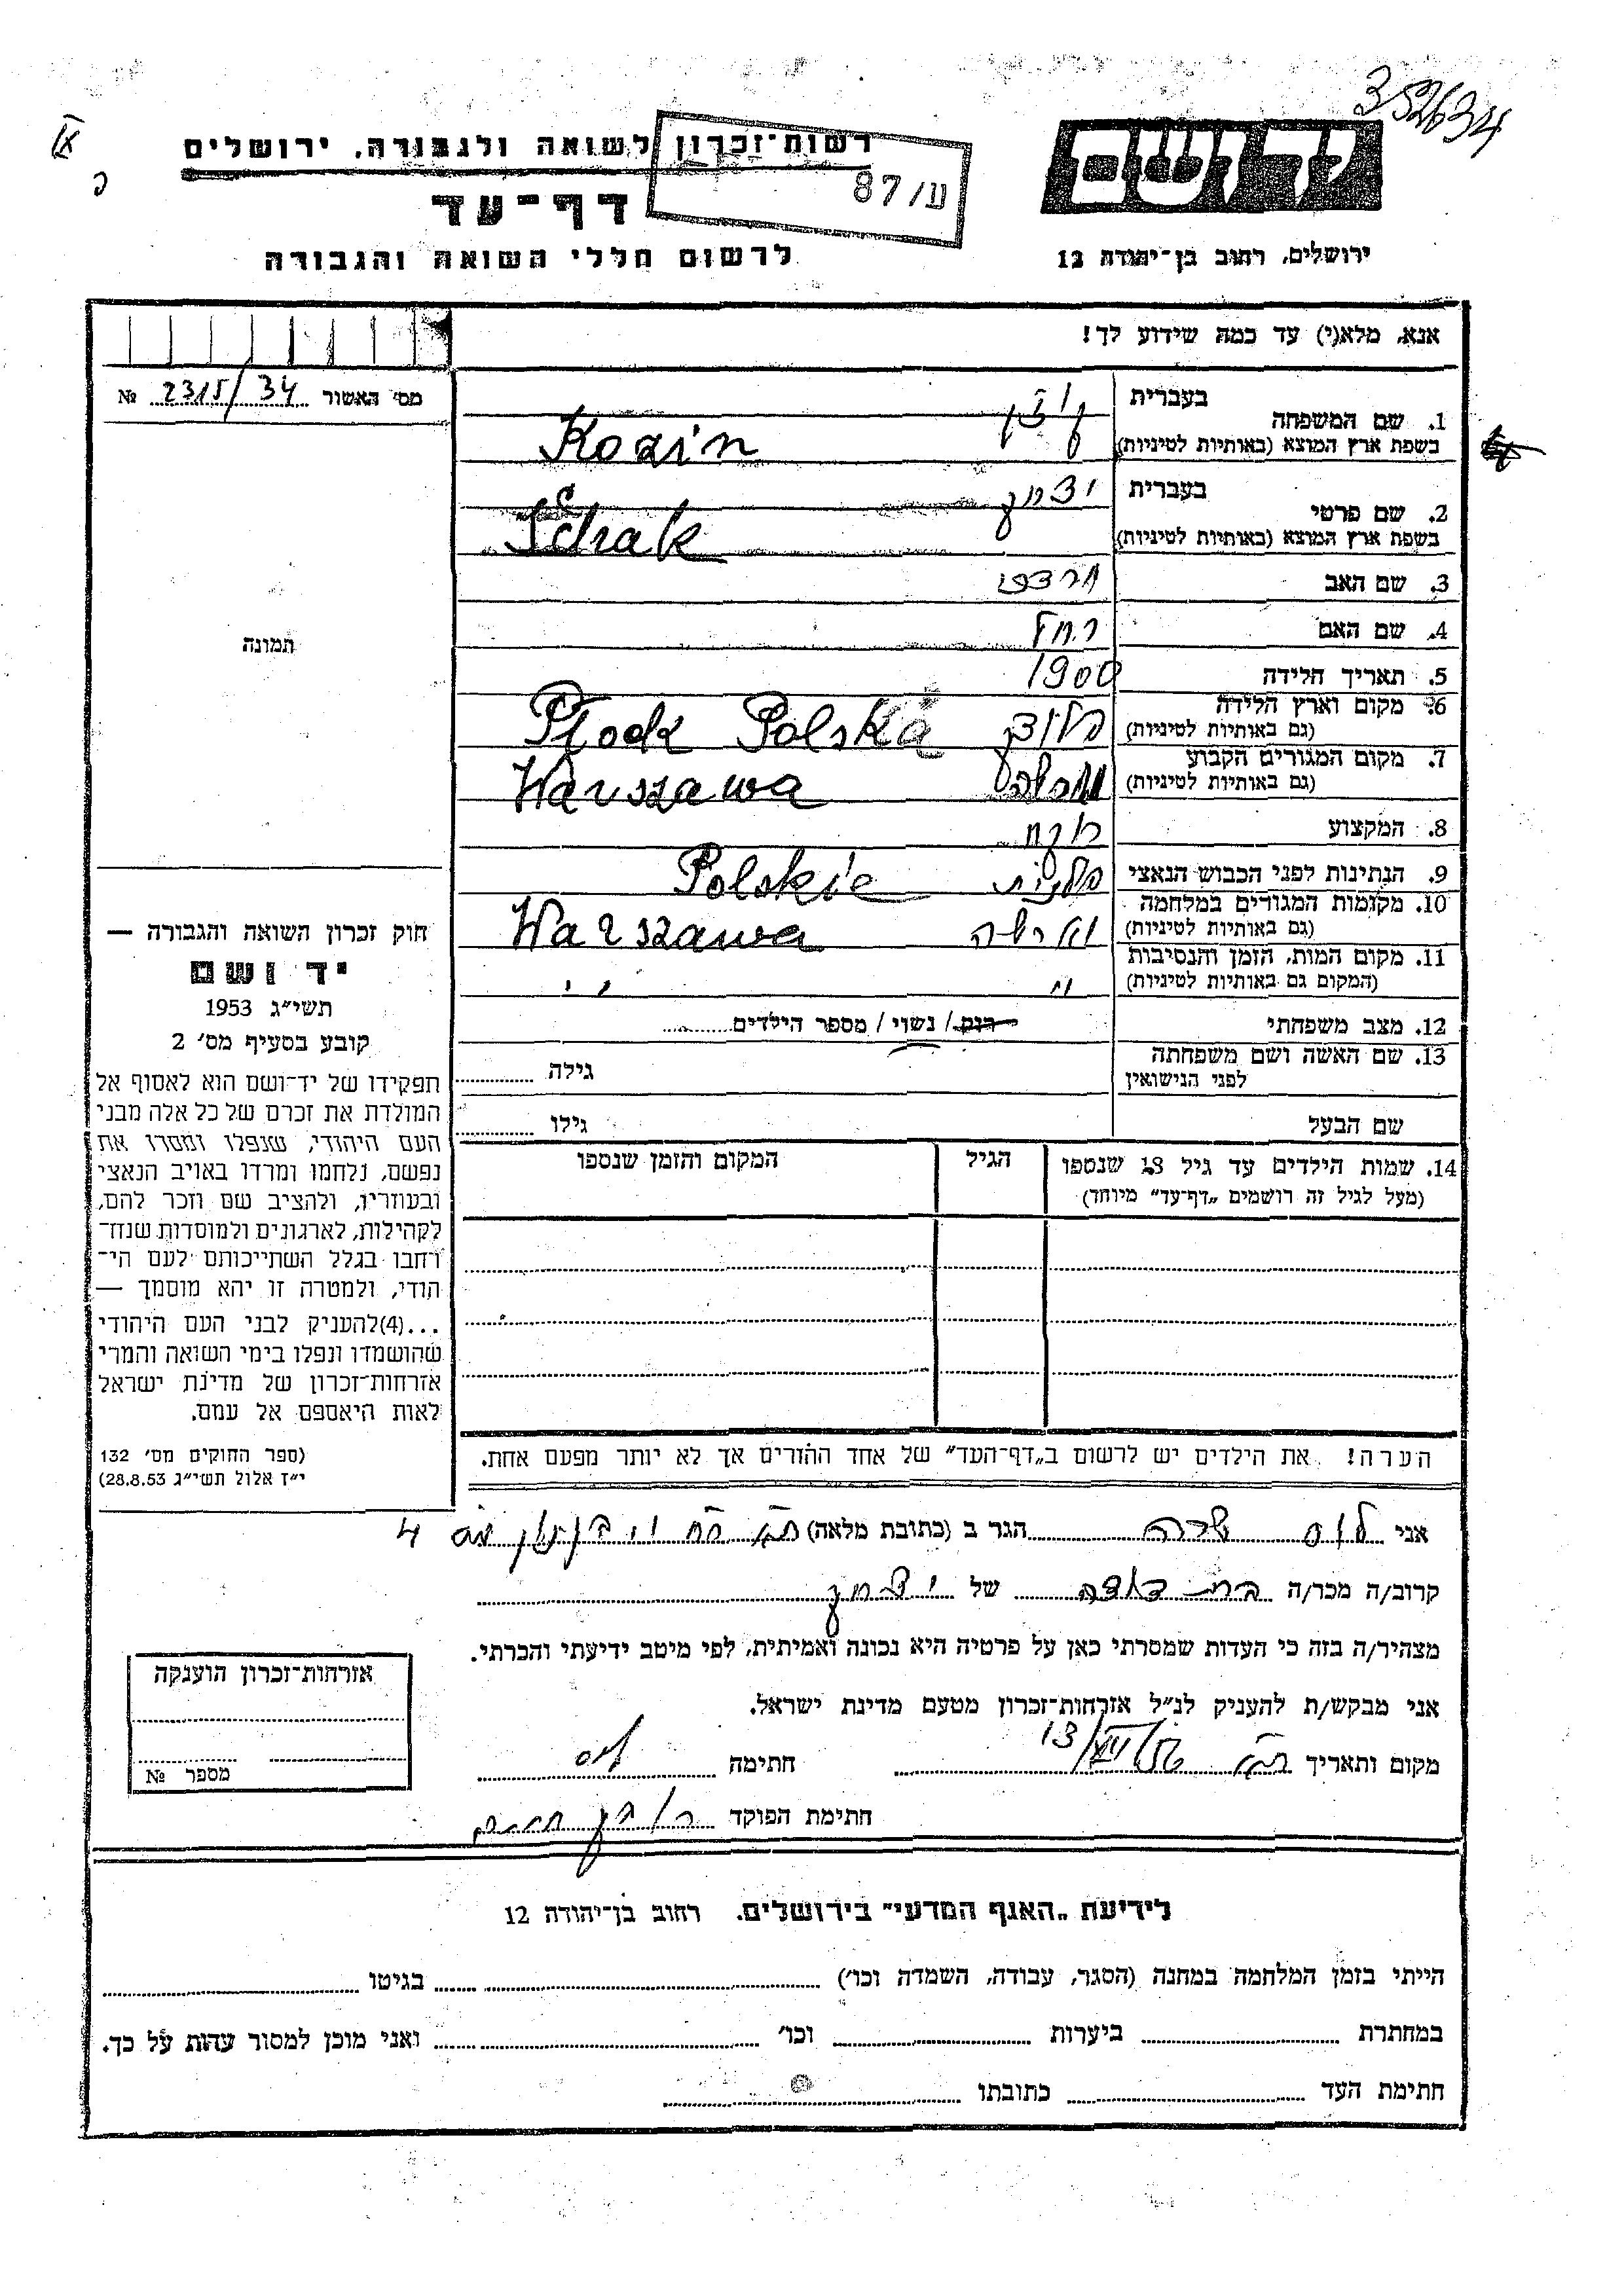 352634
רשות־זכרון לשואה ולגבורה, ירושלים
ע/87
דף־עד
לרשום חללי השואה והגבורה
יד ושם
ירושלים, רחוב בן־יהודה 12
אנא, מלא(י) עד כמה שידוע לך!
מס' האשור 2315/34 №
תמונה
1. שם המשפחה
בעברית
בשפת ארץ המוצא (באותיות לטיניות) Kozin
2. שם פרטי
בעברית יצחק
בשפת ארץ המוצא (באותיות לטיניות) Ichak
3. שם האב מרדכי
4. שם האם רחל
5. תאריך הלידה 1900
6. מקום וארץ הלידה
(גם באותיות לטיניות) פלוצק Płock Polska
7. מקום המגורים הקבוע
(גם באותיות לטיניות) Warszawa
8. המקצוע
9. הנתינות לפני הכבוש הנאצי פולנית Polskie
10. מקומות המגורים במלחמה
(גם באותיות לטיניות) וארשה Warszawa
11. מקום המות, הזמן והנסיבות
(המקום גם באותיות לטיניות) " "
12. מצב משפחתי רווק / נשוי / מספר הילדים
13. שם האשה ושם משפחתה
לפני הנישואין
גילה
שם הבעל גילו
14. שמות הילדים עד גיל 18 שנספו
(מעל לגיל זה רושמים „דף־עד" מיוחד)
הגיל
המקום והזמן שנספו
הערה! את הילדים יש לרשום ב„דף־העד" של אחד ההורים אך לא יותר מפעם אחת.
חוק זכרון השואה והגבורה —
יד ושם
תשי״ג 1953
קובע בסעיף מס' 2
תפקידו של יד־ושם הוא לאסוף אל
המולדת את זכרם של כל אלה מבני
העם היהודי, שנפלו ומסרו את
נפשם, נלחמו ומרדו באויב הנאצי
ובעוזריו, ולהציב שם וזכר להם,
לקהילות, לארגונים ולמוסדות שנח־
רחבו בגלל השתייכותם לעם הי־
הודי, ולמטרה זו יהא מוסמך —
...(4)להעניק לבני העם היהודי
שהושמדו ונפלו בימי השואה והמרי
אזרחות־זכרון של מדינת ישראל
לאות היאספם אל עמם.
(ספר החוקים מס' 132
י״ז אלול תשי״ג 28.8.53)
אני שרה הגר ב (כתובת מלאה) 4
קרוב/ה מכר/ה בת דודה של יצחק
מצהיר/ה בזה כי העדות שמסרתי כאן על פרטיה היא נכונה ואמיתית, לפי מיטב ידיעתי והכרתי.
אני מבקש/ת להעניק לנ״ל אזרחות־זכרון מטעם מדינת ישראל.
מקום ותאריך 13/ חתימה
חתימת הפוקד
אזרחות־זכרון הוענקה
מספר №
לידיעת „האגף המדעי" בירושלים. רחוב בן־יהודה 12
הייתי בזמן המלחמה במחנה (הסגר, עבודה, השמדה וכו') בגיטו
במחתרת ביערות וכו' ואני מוכן למסור עדות על כך.
חתימת העד כתובתו